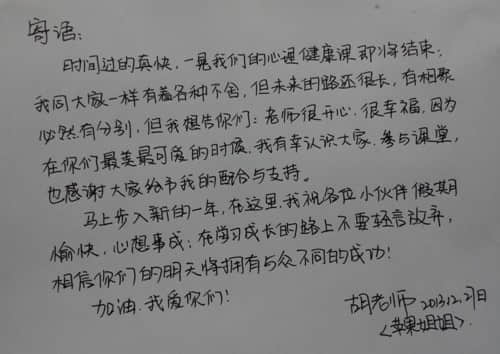 寄语:
时间过的真快,一晃我们的心理健康课即将结束;
我同大家一样有着各种不舍,但未来的路还很长,有相聚
必然有分别,但我想告你们:老师很开心、很幸福,因为
在你们最美最可爱的时候,我有幸认识大家、参与课堂,
也感谢大家给予我的配合与支持。
马上步入新的一年,在这里,我祝各位小伙伴假期
愉快,心想事成;在学习成长的路上不要轻言放弃,
相信你们的明天将拥有与众不同的成功!
加油,我爱你们!
胡老师 2013.12.27日
<苹果姐姐>